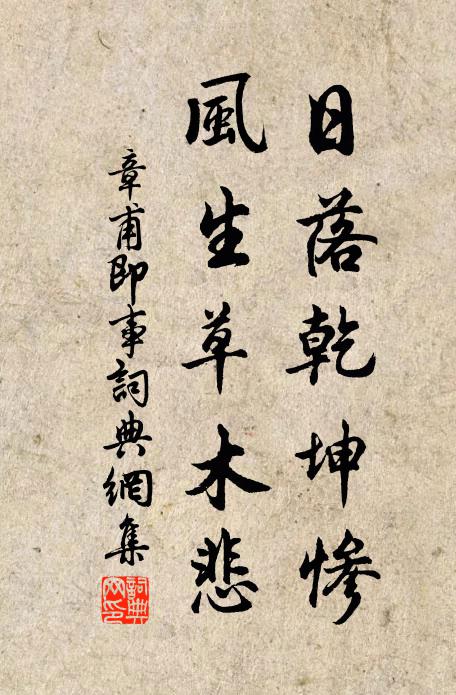 日落乾坤慘
風生草木悲
章甫即事詞典網集
詞典網印